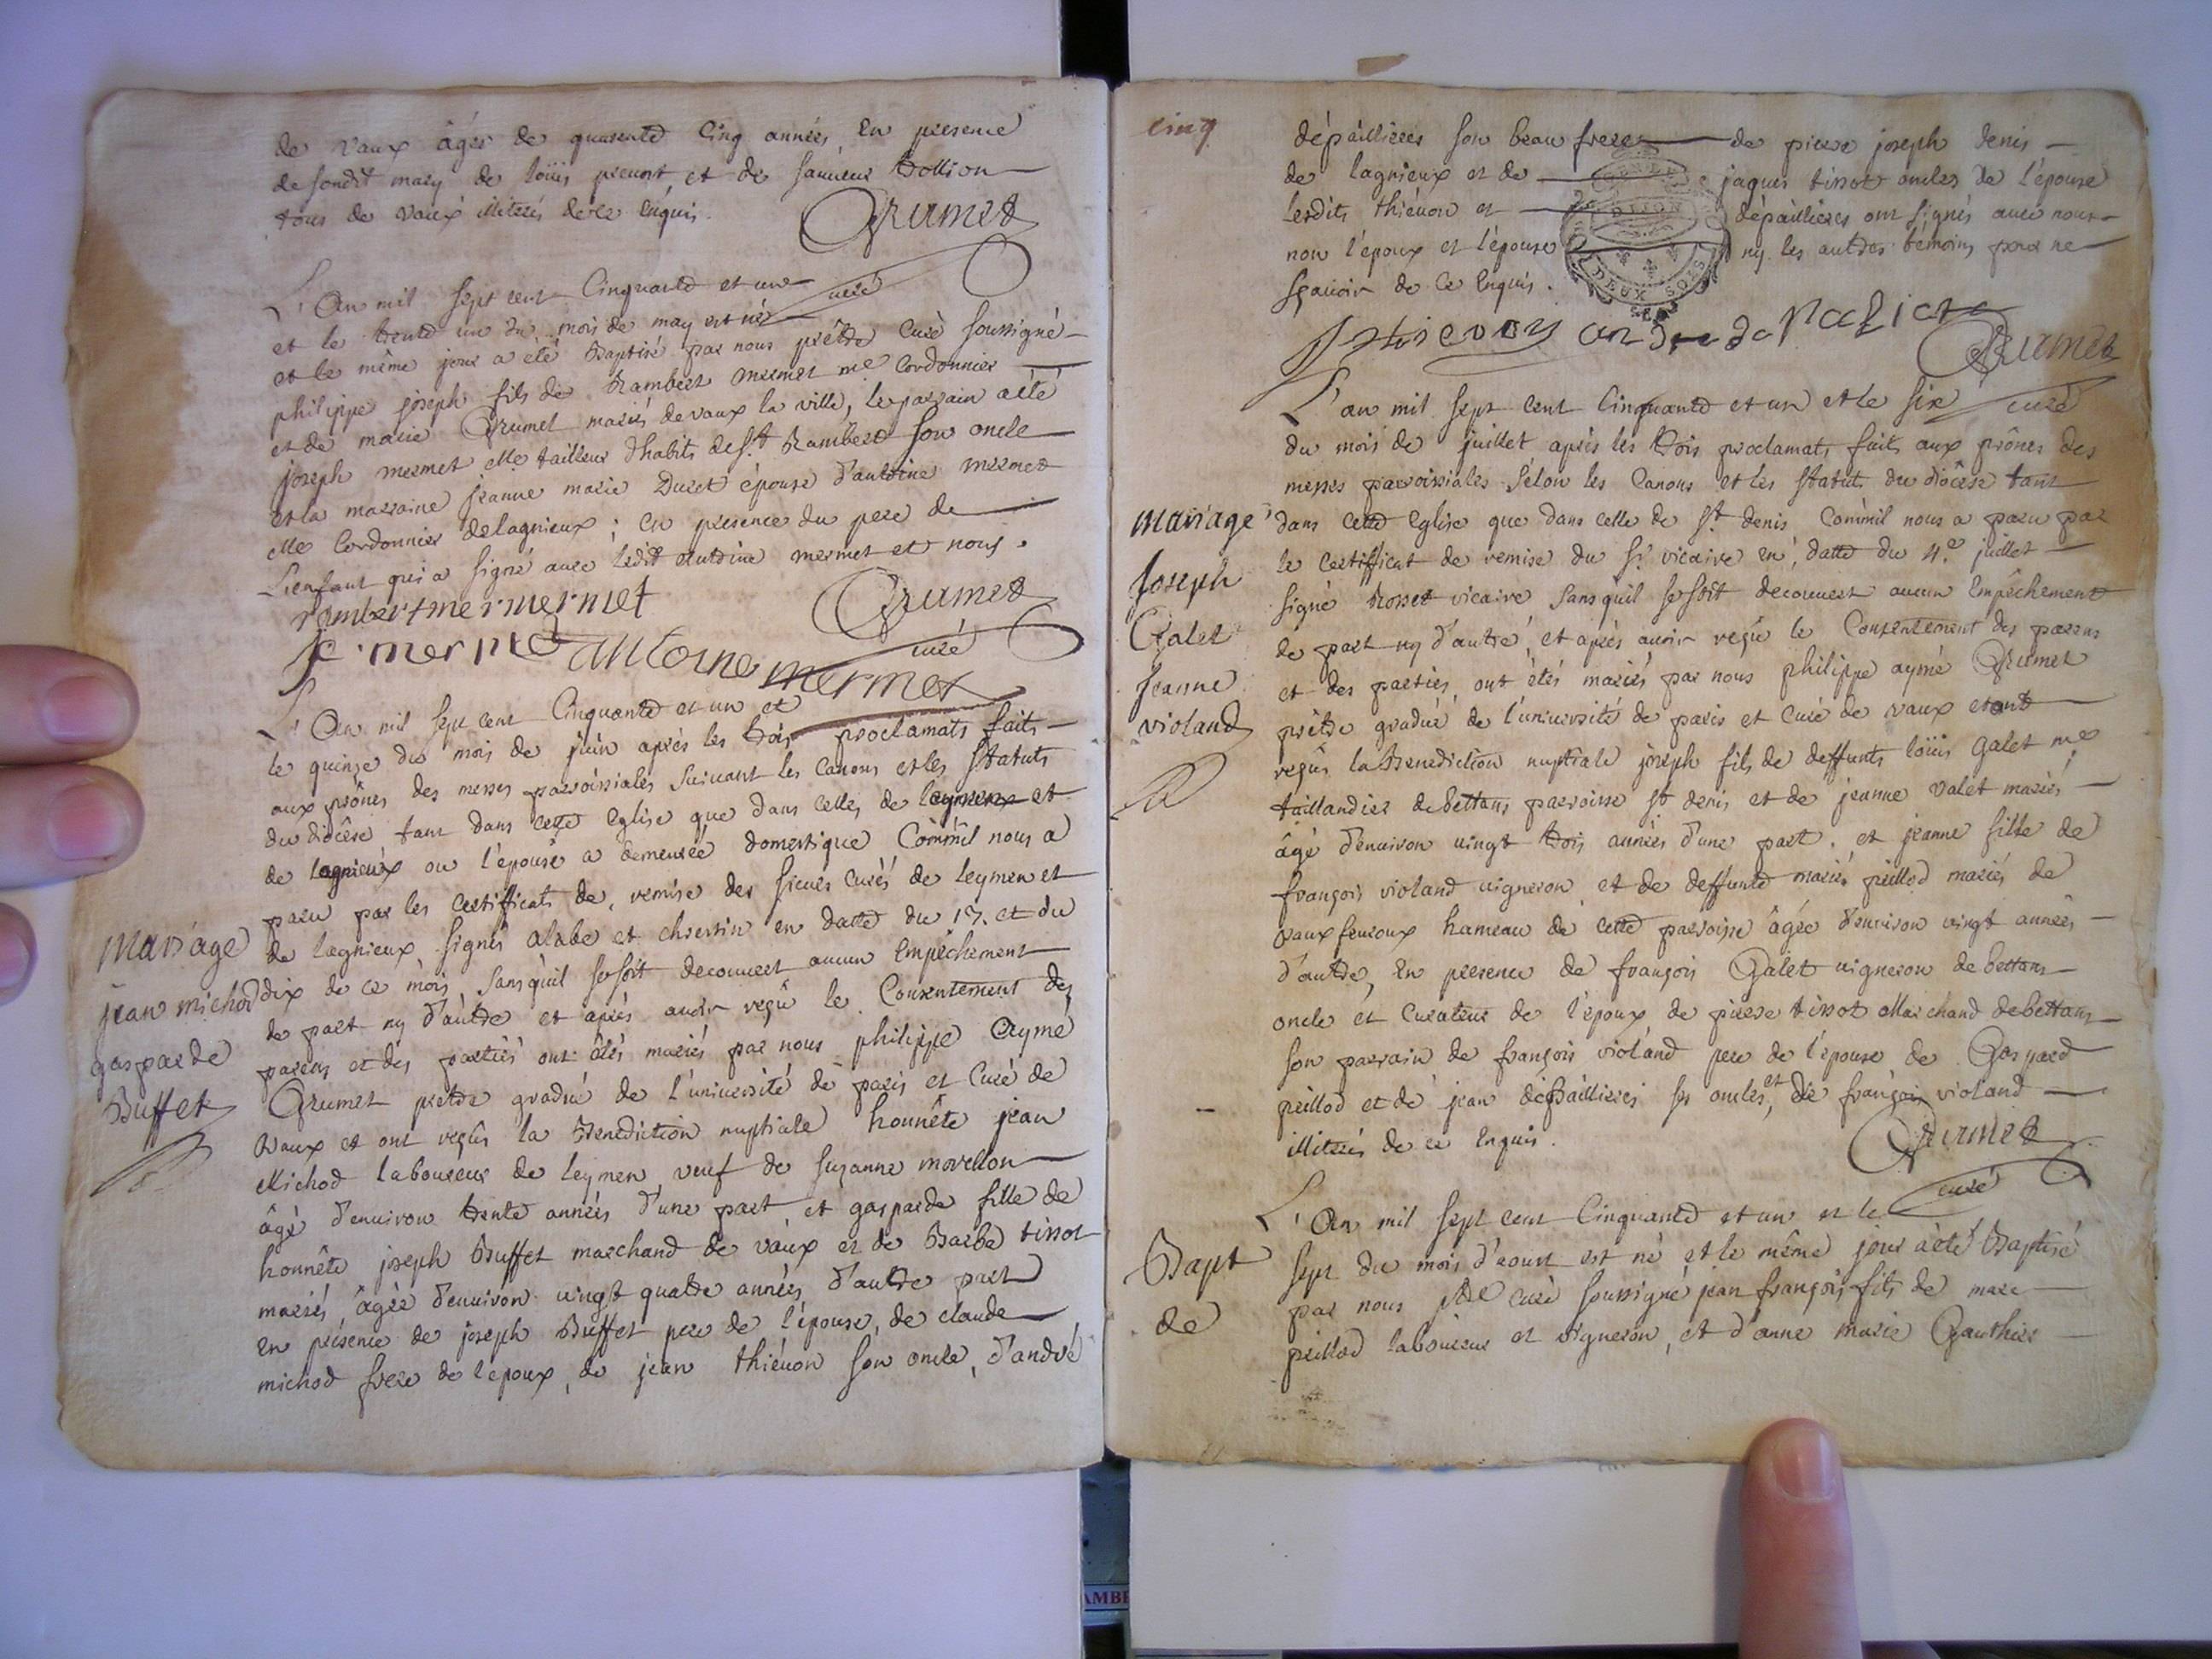 de vaux âgée de quarente Cinq années, En presence
de sondit mary de loüis prevost et de sauveur Bollion
tous de vaux illiterés de ce Enquis.
Grumet
curé
L'An mil sept cent Cinquante et un
et le trente un du mois de may est né
et le même jour a été Baptisé par nous prêtre Curé soussigné
philippe joseph fils de Rambert mermet me Cordonnier
et de marie Grumet mariés de vaux la ville, le parrain a été
joseph mermet Me tailleur d'habits de St. Rambert son oncle
et la marraine jeanne marie Duret épouse d'antoine mermet
Me Cordonnier de lagnieux ; en presence du pere de
L'enfant qui a signé avec ledit antoine mermet et nous.
rambert mermet
Grumet
curé
j. mermet antoine mermet
L'An mil sept cent Cinquante et un et
le quinze du mois de juin après les trois proclamats faits
aux prônes des messes parroissiales suivant les Canons et les statuts
du diocêse tant dans cette Eglise que dans celles de leymen et
de lagnieux ou l'épouse a demeurée domestique Commil nous a
paru par les certificats de remise des sieurs curés de leymen et
de lagnieux signés et en datte du 13. et du
Mariage
jean michod
gasparde
Buffet
dix de ce mois sans qu'il se soit decouvert aucun Empêchement
de part ny d'autre et après avoir reçû le Consentement des
parens et des parties ont étés mariés par nous philippe Aymé
Grumet pretre gradué de l'université de paris et Curé de
vaux et ont reçûs la Benediction nuptiale honnête jean
Michod laboureur de leymen veuf de suzanne morellon
âgé d'environ trente années d'une part et gasparde fille de
honnête joseph Buffet marchand de vaux et de Barbe tissot
mariés âgée d'environ vingt quatre années d'autre part
en présence de joseph Buffet pere de l'épouse, de claude
michod frere de l'epoux, de jean thiévon son oncle, d'andré
cinq
dépaillieres son beau frere de pierre joseph denis
de lagnieux et de jaques tissot oncles de l'épouse
lesdits thiévon et dépaillieres ont signés avec nous
non l'époux et l'épouse ny les autres témoins pour ne
sçavoir de ce Enquis.
DEUX SOLS
J thievon andre
Grumet
curé
L'an mil sept cent Cinquante et un et le six
du mois de juillet après les trois proclamats faits aux prônes des
messes parroissiales selon les Canons et les statuts du diôcêse tant
Mariage
Joseph
Galet
Jeanne
violand
dans cette Eglise que dans celle de St. denis Commil nous a paru par
le certifficat de remise du Sr. vicaire en datte du 4.e juillet
signé Rosset vicaire sans qu'il se soit decouvert aucun Empêchement
de part ny d'autre, et après avoir reçû le Consentement des parens
et des parties, ont étés mariés par nous philippe aymé Grumet
prêtre gradué de l'université de paris et Curé de vaux et ont
reçûs la Benediction nuptiale joseph fils de deffunts loüis Galet me
taillandier de bettans parroisse St denis et de jeanne valet mariés
âgé d'environ vingt trois années d'une part. et jeanne fille de
françois violand vigneron et de deffunte marie peillod mariés de
vauxfevroux hameau de cette parroisse âgée d'environ vingt années
d'autre, En presence de françois Galet vigneron de bettans
oncle et Curateur de l'époux de pierre tissot Marchand de bettans
son parrain de françois violand pere de l'épouse de Gaspard
peillod et de jean dépaillieres ses oncles, et de françois violand
illiterés de ce Enquis.
Grumet
curé
Bapt
de
L'An mil sept cent Cinquante et un et le
sept du mois d'aoust est né et le même jour a été Baptisé
par nous ptre curé soussigné jean françois fils de marc
peillod laboureur et vigneron, et d'anne marie Gauthier